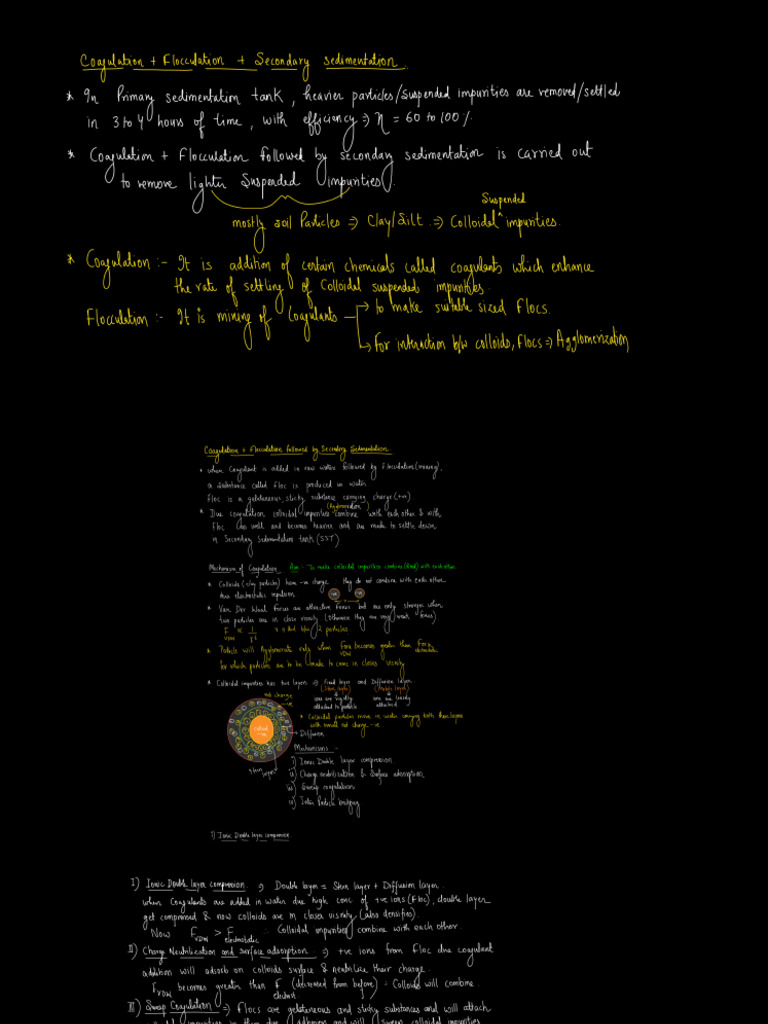 Coagulation + Flocculation + Secondary sedimentation.
* In Primary sedimentation tank, heavier particles/suspended impurities are removed/settled
in 3 to 4 hours of time, with efficiency => η = 60 to 100%.
* Coagulation + Flocculation followed by seconday sedimentation is carried out
to remove lighter Suspended impurities.
Suspended
mostly soil Particles => Clay/Silt. => Colloidal ^ impurities.
* Coagulation :- It is addition of certain chemicals called coagulants which enhance
the rate of settling of Colloidal suspended impurities.
Flocculation :- It is mixing of Coagulants → to make suitable sized Flocs.
→ For interaction b/w colloids, Flocs => Agglomerization
Coagulation + Flocculation followed by Secondary Sedimentation
* when Coagulant is added in raw water followed by Flocculation (mixing),
a substance called floc is produced in water
Floc is a gelataneous, sticky substance carrying charge (+ve)
* Due coagulation colloidal impurities combine with each other & with
Floc as well and becomes heavier and are made to settle down
in Secondary Sedimentation tank (SST)
Mechanism of Coagulation Aim - To make colloidal impurities combine (bind) with each other
* Colloids (clay particles) have -ve charge they do not combine with each other
due electrostatic repulsion
-ve -ve
* Van Der Waal Forces are attractive forces but are only stronger when
two particles are in close visinity (otherwise they are very weak forces)
F VDW ∝ 1/r⁶ 2 particles
* Particle will Agglomerate only when Force VDW becomes greater than Force
for which particles are to be made to come in closer visinity
* Colloidal impurities has two layers => Fixed layer and Diffusion layer
(Stern layer) (Mobile layer)
net charge -ve
ions are rigidly ions are loosely
attached to particle attached
* Colloidal particles move in water carrying both these layers
with overall net charge -ve
Colloid
-ve
Diffusion
Stern
layer
Mechanisms -
i) Ionic Double layer compression
ii) Charge neutralisation & Surface adsorption
iii) Sweep coagulation
iv) Inter Particle bridging
1) Ionic Double layer compression
I) Ionic Double layer compression => Double layer = Stern layer + Diffusion layer.
when Coagulants are added in water due high conc of +ve ions (Floc), double layer
get compressed & now colloids are in closer visinity (also densifies).
Now F VDW > F electrostatic ∴ Colloidal impurities combine with each other.
II) Charge Neutrilization and surface adsorption => +ve ions from Floc due coagulant
addition will adsorb on colloids surface & neutrilize their charge.
F VDW becomes greater than F electrost. (decreased from before) ∴ Colloids will combine.
III) Sweep Coagulation => Flocs are gelataneous and sticky substances and will attach
impurities adhering and will sweep colloidal impurities